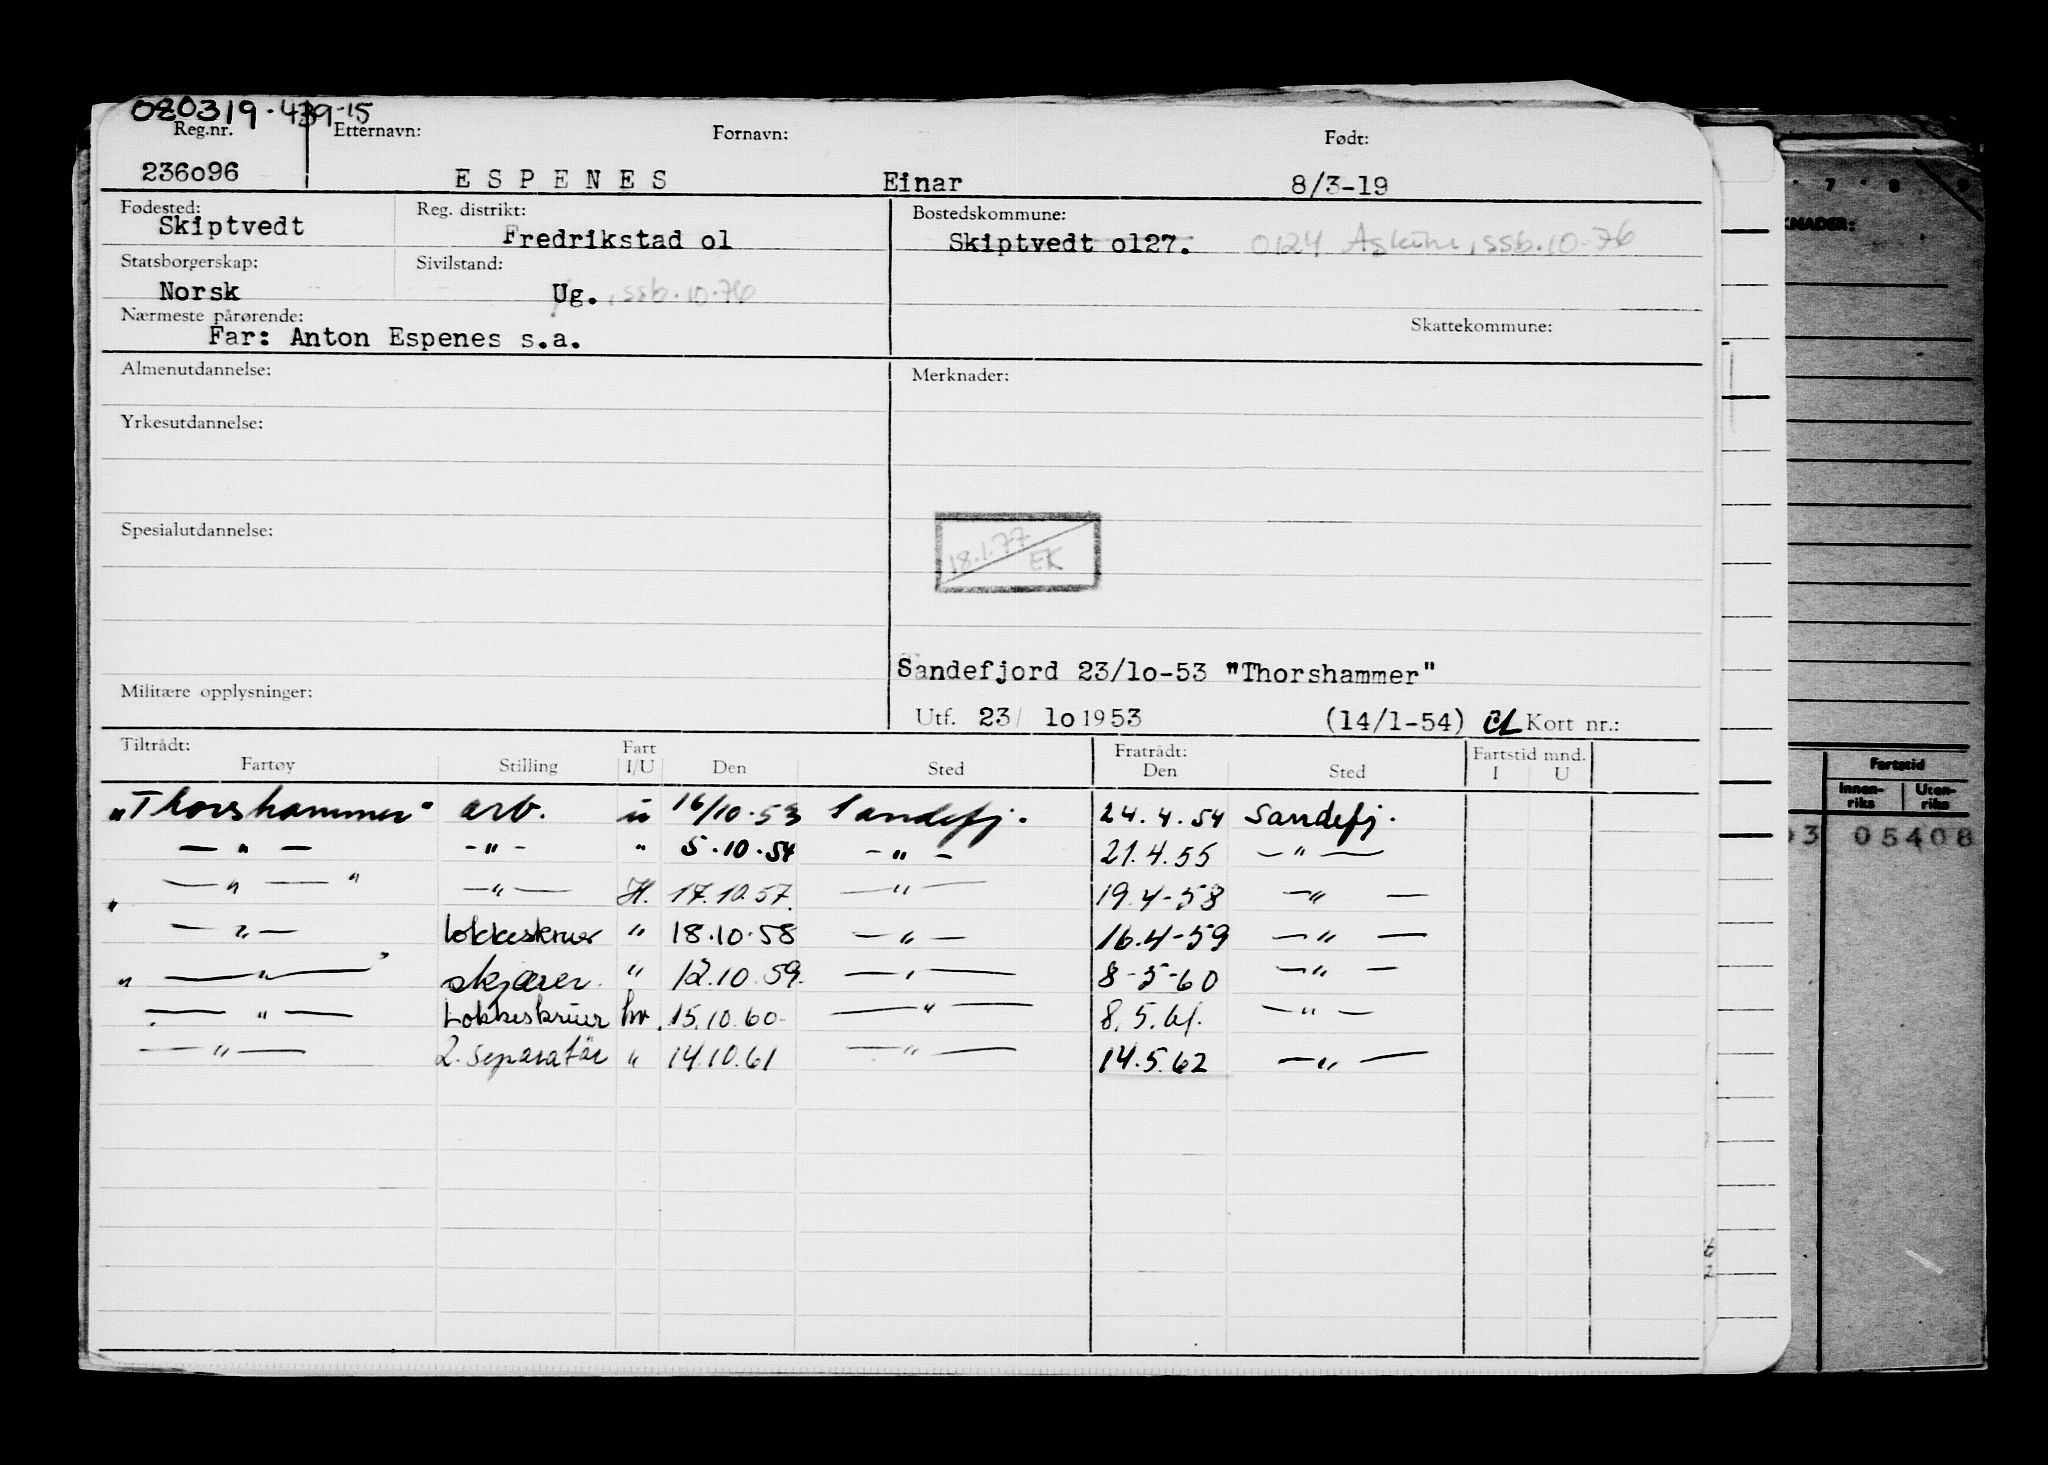 080319·439-15
Reg.nr. Etternavn: Fornavn: Født:
236o96 E S P E N E S Einar 8/3-19
Fødested: Reg. distrikt: Bostedskommune:
Skiptvedt Fredrikstad ol Skiptvedt ol27. 0124 Askim, ssb.10-76
Statsborgerskap: Sivilstand:
Norsk Ug. , ssb.10.76
Nærmeste pårørende: Skattekommune:
Far: Anton Espenes s.a.
Almenutdannelse: Merknader:
Yrkesutdannelse:
Spesialutdannelse:
18.1.77 EK
Sandefjord 23/lo-53 "Thorshammer"
Militære opplysninger:
Utf. 23/ lo 1953 (14/1-54) Kort nr.:
Tiltrådt: Fart Fratrådt: Fartstid mnd.
Fartøy Stilling I/U Den Sted Den Sted I U
"Thorshammer" arb. u 16/10.53 Sandefj. 24.4.54 Sandefj.
— " — - " - " 5.10.54 - " - 21.4.55 — " —
" — " — " — " — H. 17.10.57. — " — 19.4-58 — " —
— " — kokkeskruer " 18.10.58 — " — 16.4-59 — " —
" — " — " skjærer. " 12.10.59. — " — 8-5-60 — " —
— " — kokkeskruer hv. 15.10.60- — " — 8.5.61. — " —
— " — 2. separatør " 14.10.61 — " — 14.5.62 — " —
7 8 9
KNADER:
Fartstid
Innen-riks Uten-riks
03 05408